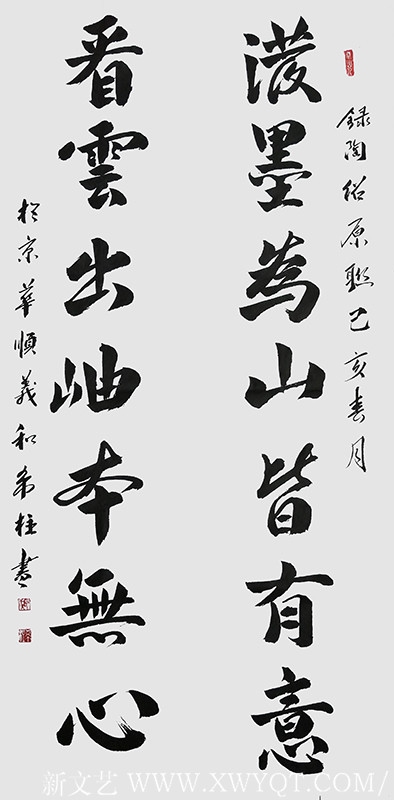 録陶俗原聯己亥春月
潑墨為山皆有意
看雲出岫本無心
於京華順義和希柱書
新文艺 WWW.XWYQT.COM/